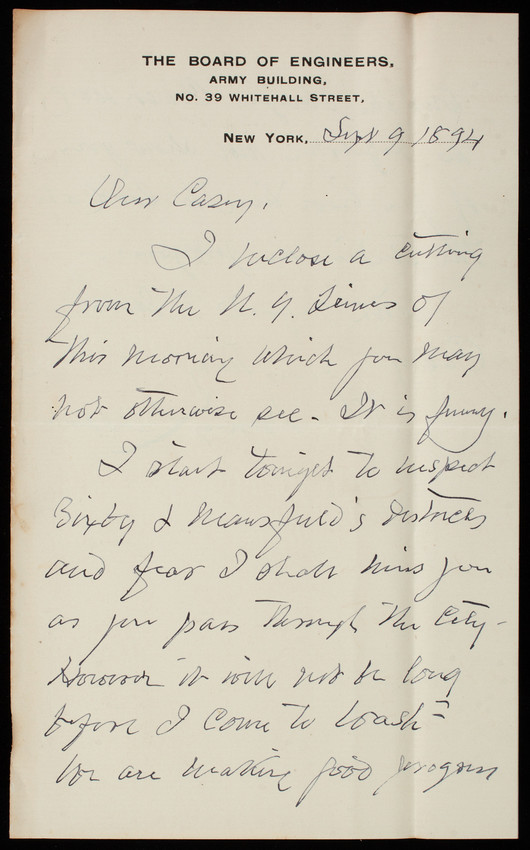 THE BOARD OF ENGINEERS,
ARMY BUILDING,
No. 39 WHITEHALL STREET,
NEW YORK, Sept 9 1894
Dear Casey,
I inclose a cutting
from the N. Y. Times of
this morning which you may
not otherwise see - It is funny.
I start tonight to inspect
Bixby & Mansfield's districts
and fear I shall miss you
as you pass through the City -
However it will not be long
before I come to Wash=
We are making good progress